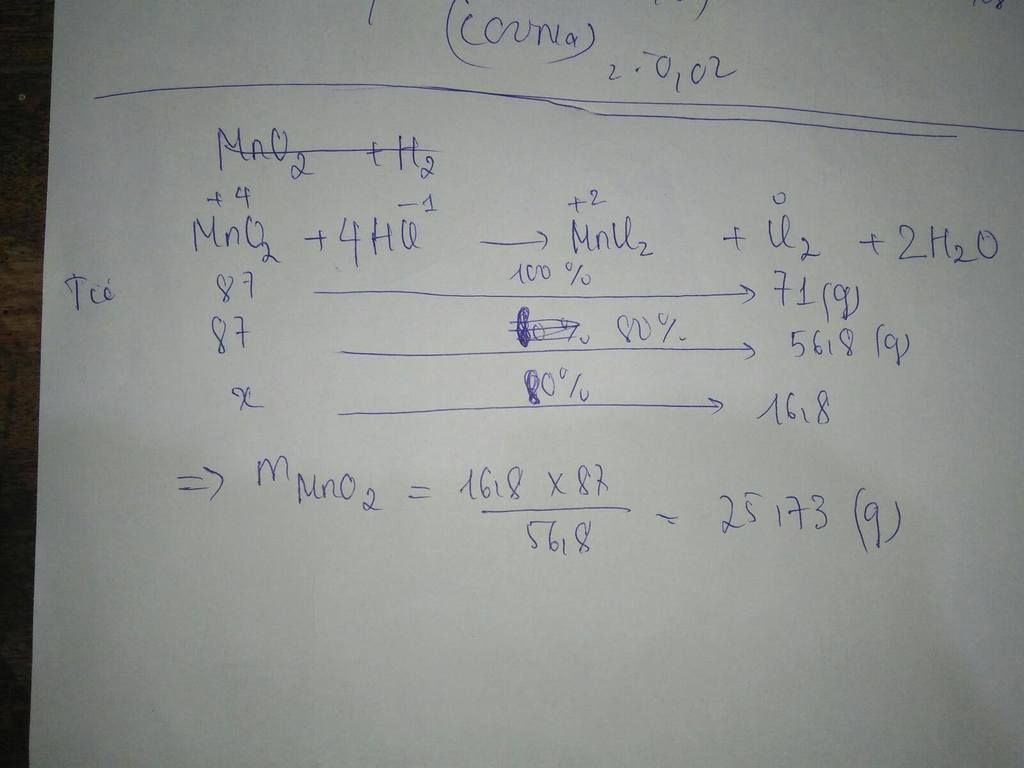 2. 0,02
MnO2 + H2
+4 -1 +2 0
MnO2 + 4HCl → MnCl2 + Cl2 + 2H2O
87 100% 71 (g)
87 80% 56,8 (g)
x 80% 16,8
=> mMnO2 = 16,8 x 87 / 56,8 = 25,73 (g)